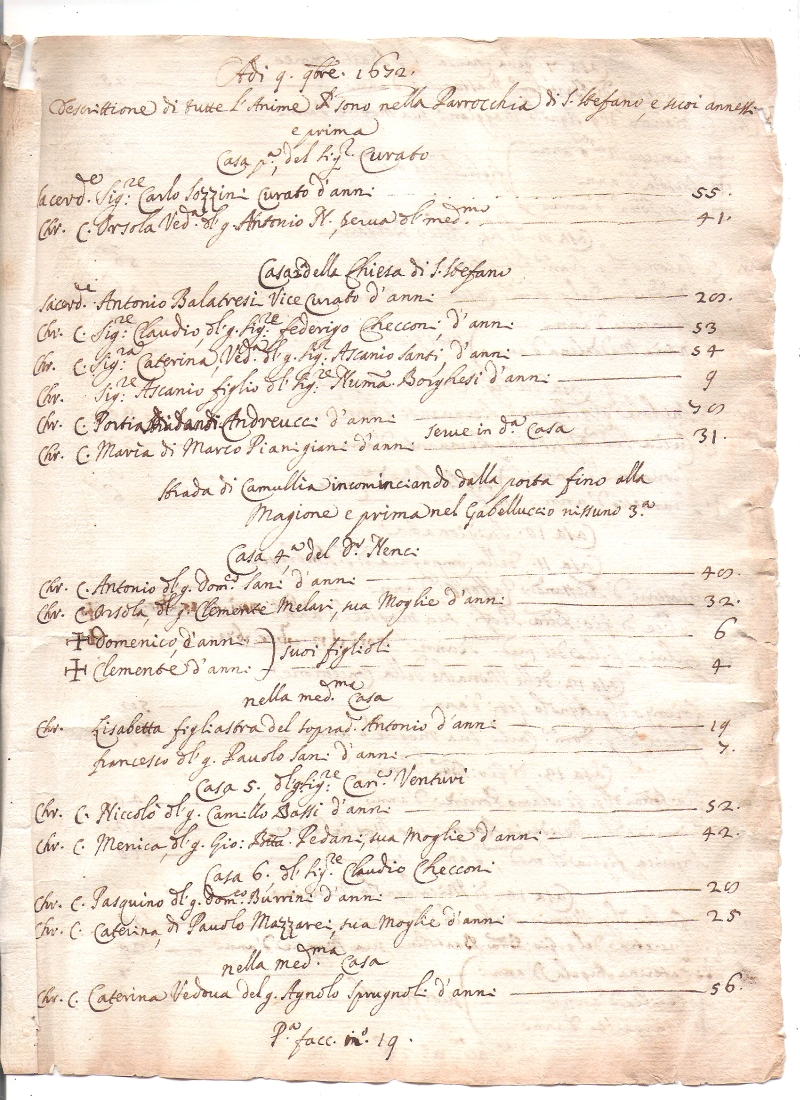 Adi 9. 9bre. 1672.
Descrittione di tutte l'Anime X sono nella Parrocchia di S. Stefano, e suoi annessi
e prima
Casa pa. del Sigr. Curato
Sacerde. Sig:re Carlo Sozzini Curato d'anni 55.
Chr. C. Orsola Veda. dl q. Antonio N., serva dl medmo. 41.
Casa 2a della Chiesa di S. Stefano
Sacerde. Antonio Balatresi Vice Curato d'anni
Chr. C. Sig:re Claudio, dl q. Sig:re federigo Checconi, d'anni 53
Chr. C. Sig:ra Caterina, Veda. dl q. Sigr. Ascanio Santi, d'anni 54
Chr. Sig:re Ascanio figlio dl Sig:re Numa. Borghesi d'anni 9
Chr. C. Portia Andreucci d'anni
Chr. C. Maria di Marco Pianigiani d'anni serve in da. Casa 31.
Strada di Camullia incominciando dalla porta fino alla
Magione e prima nel Gabelluccio nissuno 3.a
Casa 4.a del Dr. Nenci
Chr. C. Antonio dl q. Domco. Sani d'anni
Chr. C. Orsola, dl q. Clemente Melari, sua Moglie d'anni 32.
✠ Domenico, d'anni 6
suoi figlioli
✠ Clemente d'anni 4
nella medma. Casa
Chr. Lisabetta figliastra del soprad. Antonio d'anni 19
francesco dl q. Pavolo Sani d'anni 7.
Casa 5. dl Sig:re Venturi
Chr. C. Niccolò dl q. Camillo Bassi d'anni 52.
Chr. C. Menica, dl q. Gio: Bta. Pedani, sua Moglie d'anni 42.
Casa 6. dl Sig:re Claudio Checconi
Chr. C. Pasquino dl q. Domco. Burrini d'anni
Chr. C. Caterina, di Pavolo Mazzarei, sua Moglie d'anni 25
nella medma. Casa
Chr. C. Caterina Vedova del q. Agnolo Sprugnoli d'anni 56.
P.a facc. no. 19.